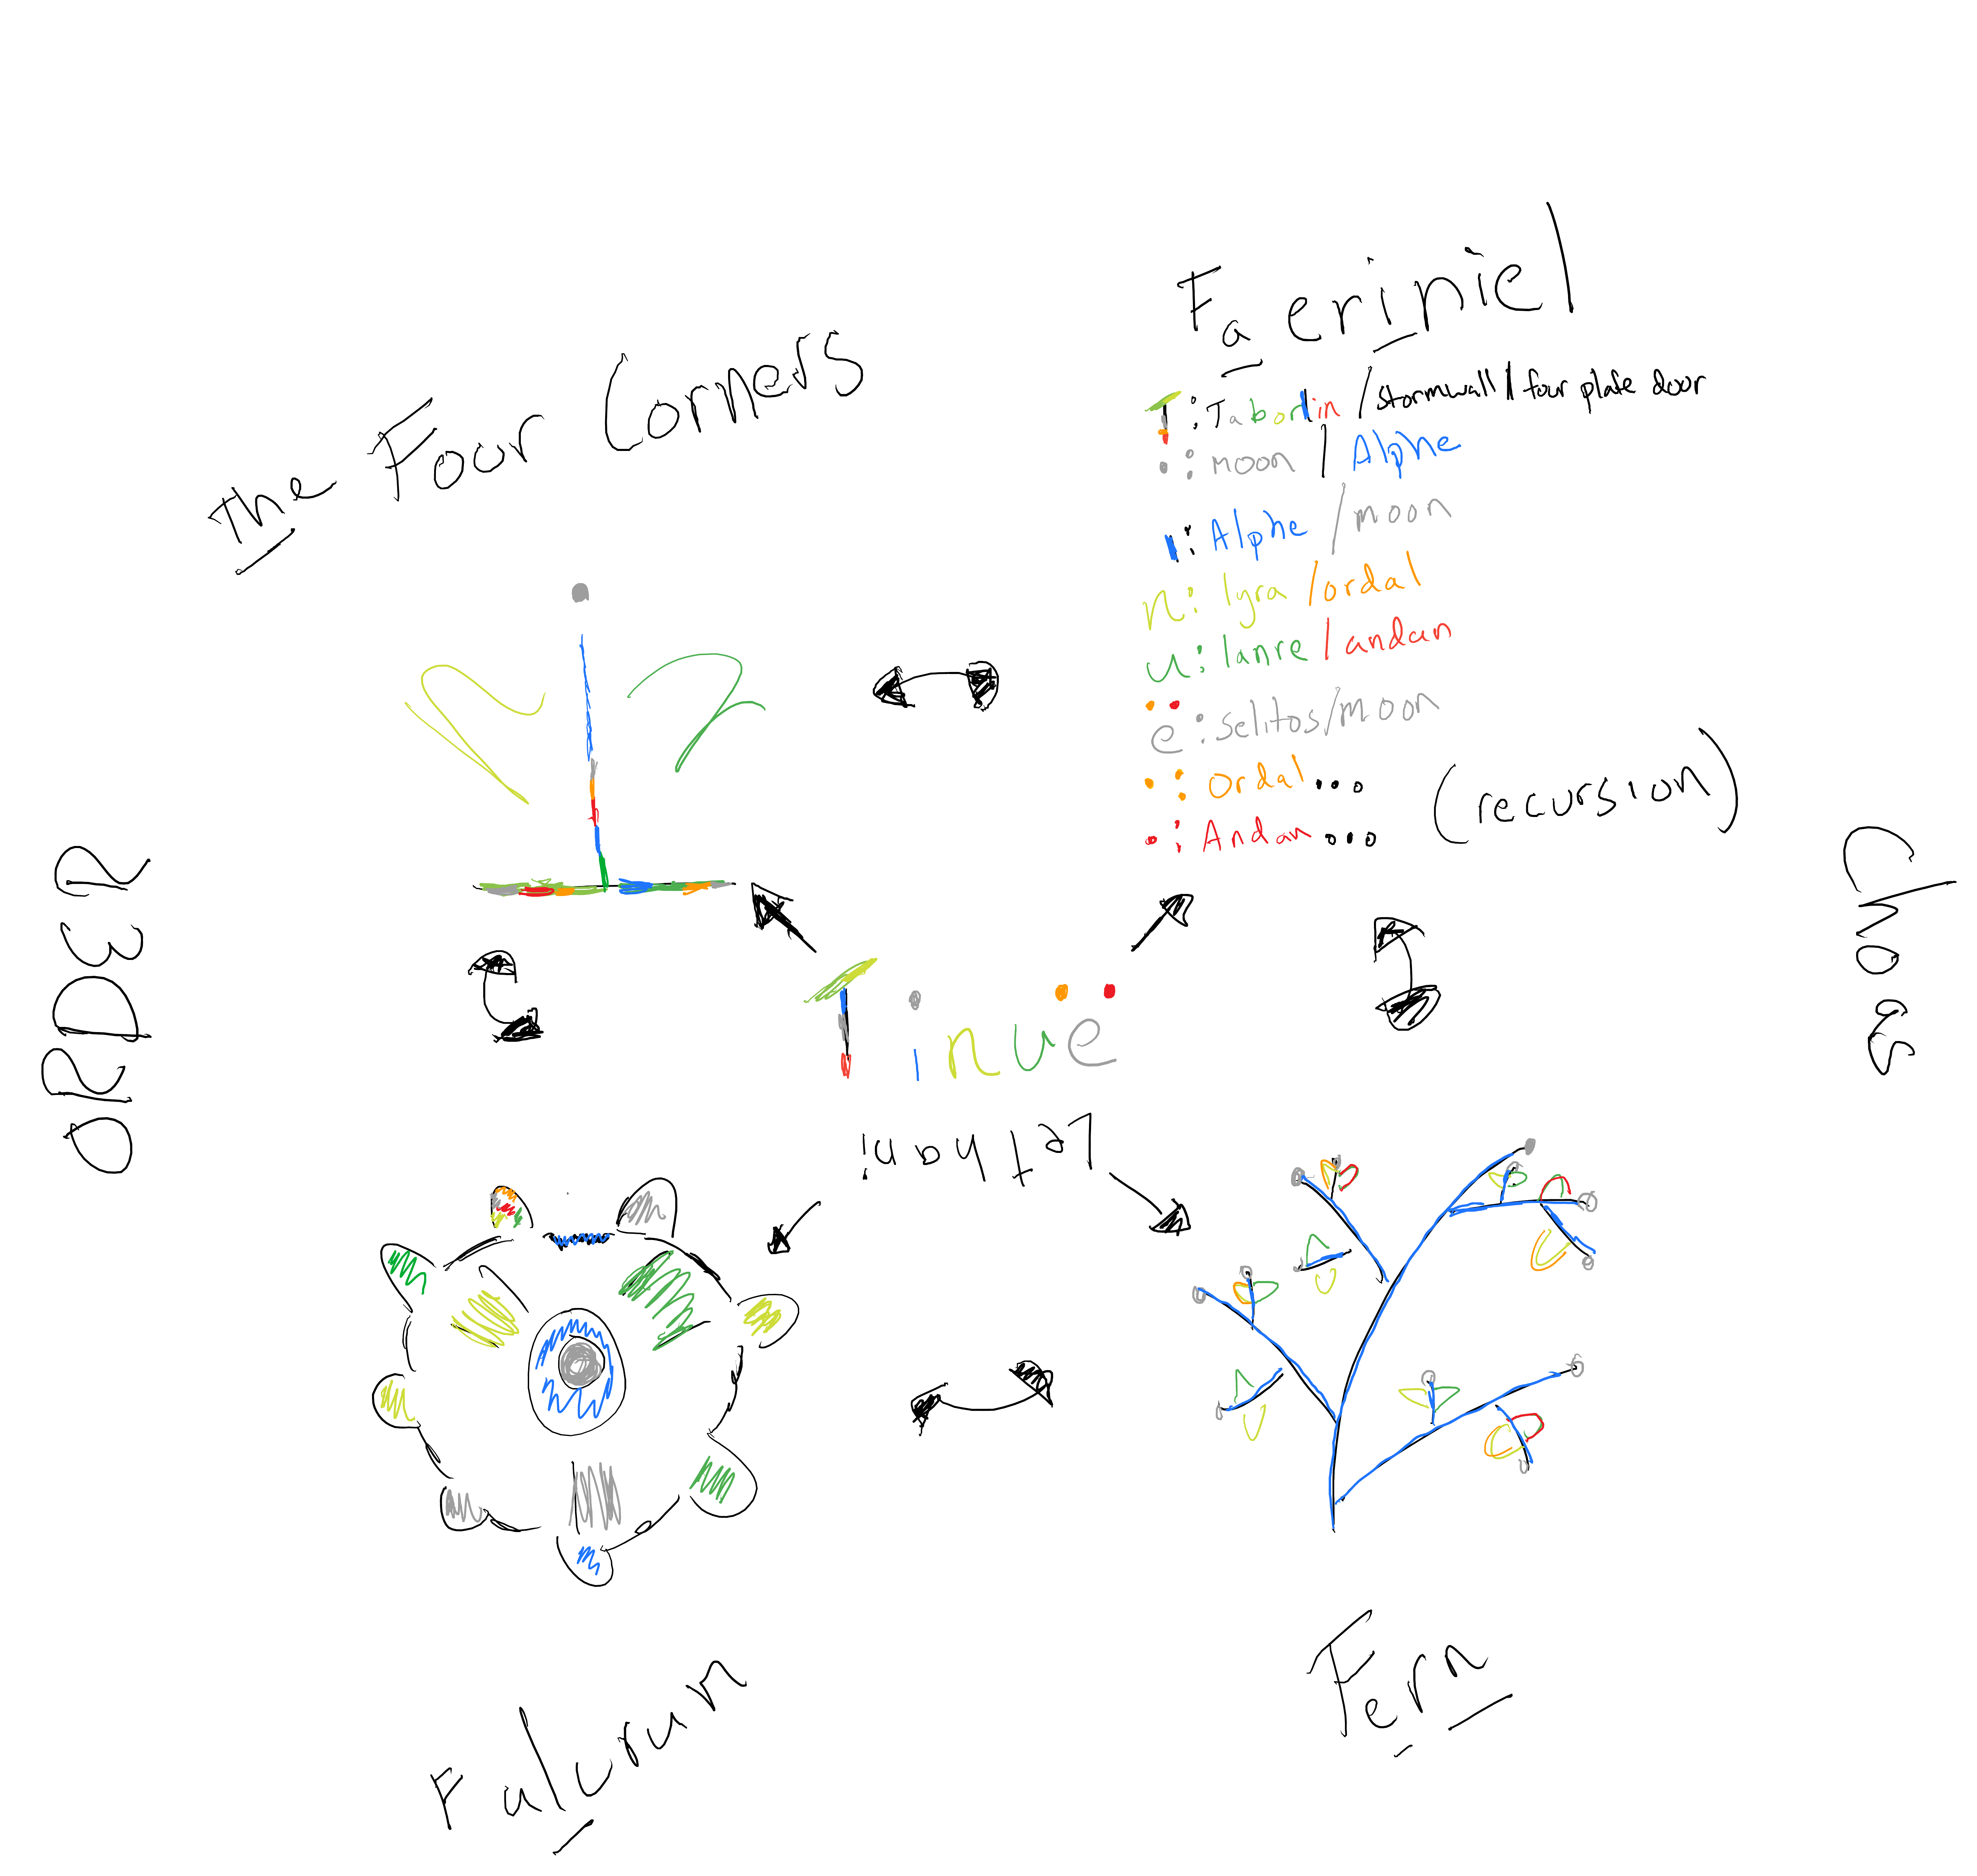 The Four Corners
Faeriniel
T: Taborlin / stormwall / four plate door
.: moon / Alphe
ı: Alphe / moon
n: lyra / ordal
u: lanre / andan
ë: selitos / moon
.: Ordal...
.: Andan...
(recursion)
ORD3R
Chaos
Tinuë
Lethani
Fulcrum
Fern